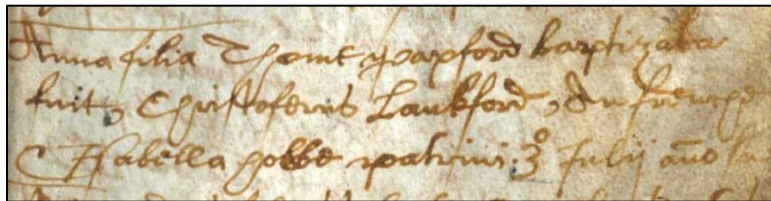 Anna filia Thome paxford baptizata
fuit, Christoferus Lankford, An
Isabella gobbe patrini. 3º Julij año